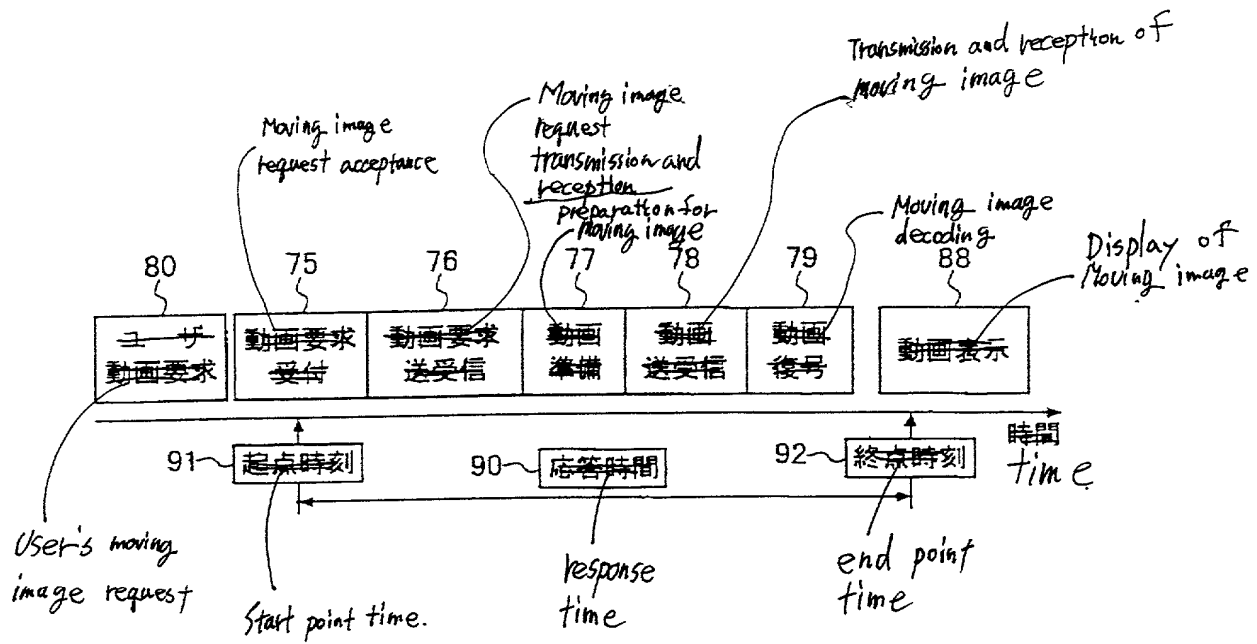 Transmission and reception of
moving image
Moving image
request
transmission and
reception
Moving image
request acceptance
preparation for
Moving image
Moving image
decoding
Display of
Moving image
80
75
76
77
78
79
88
ユーザ
動画要求
動画要求
受付
動画要求
送受信
動画
準備
動画
送受信
動画
復号
動画表示
時間
time
91
起点時刻
90
応答時間
92
終点時刻
User's moving
image request
Start point time.
response
time
end point
time